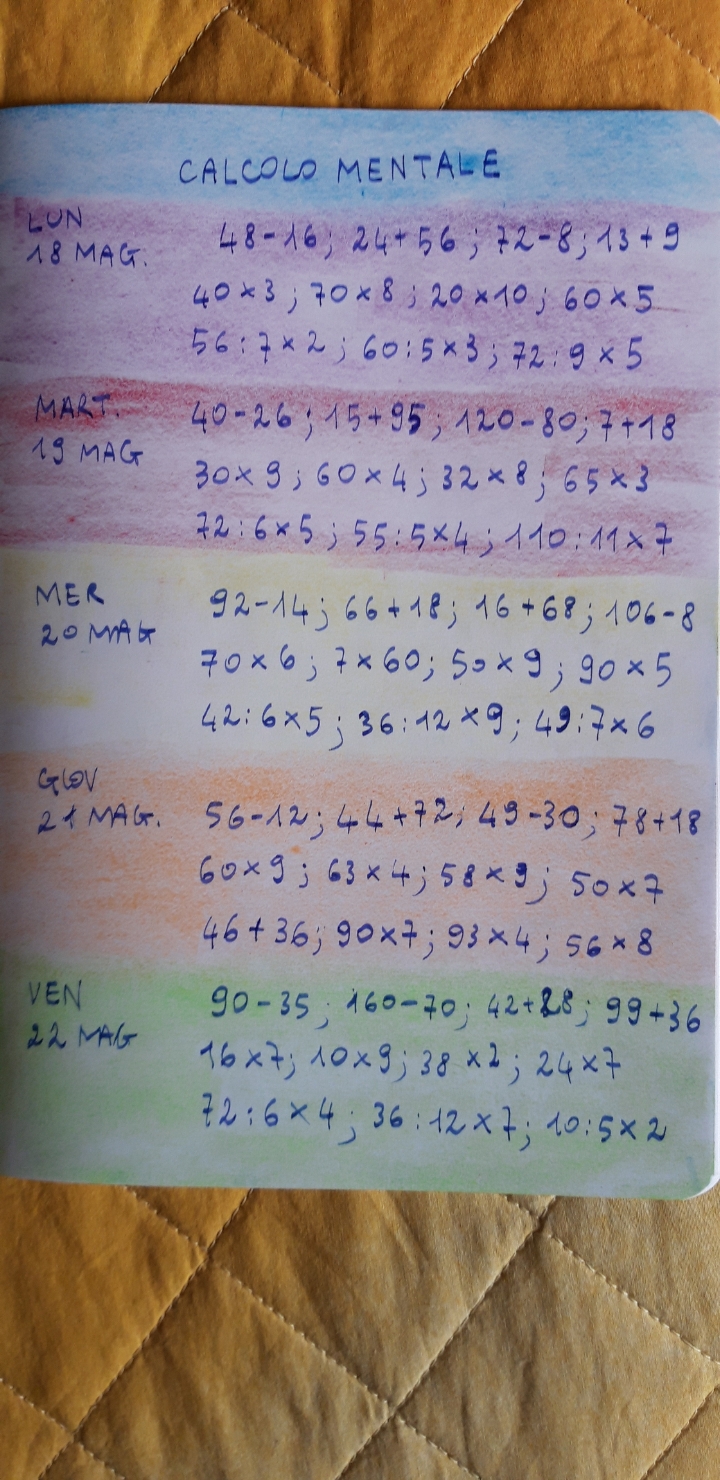 CALCOLO MENTALE
LUN
18 MAG.
48-16; 24+56; 72-8; 13+9
40×3; 70×8; 20×10; 60×5
56:7×2; 60:5×3; 72:9×5
MART.
19 MAG
40-26; 15+95; 120-80; 7+18
30×9; 60×4; 32×8; 65×3
72:6×5; 55:5×4; 110:11×7
MER
20 MAG
92-14; 66+18; 16+68; 106-8
70×6; 7×60; 50×9; 90×5
42:6×5; 36:12×9; 49:7×6
GIOV
21 MAG.
56-12; 44+72; 49-30; 78+18
60×9; 63×4; 58×9; 50×7
46+36; 90×7; 93×4; 56×8
VEN
22 MAG
90-35; 160-70; 42+28; 99+36
16×7; 10×9; 38×2; 24×7
72:6×4; 36:12×7; 10:5×2